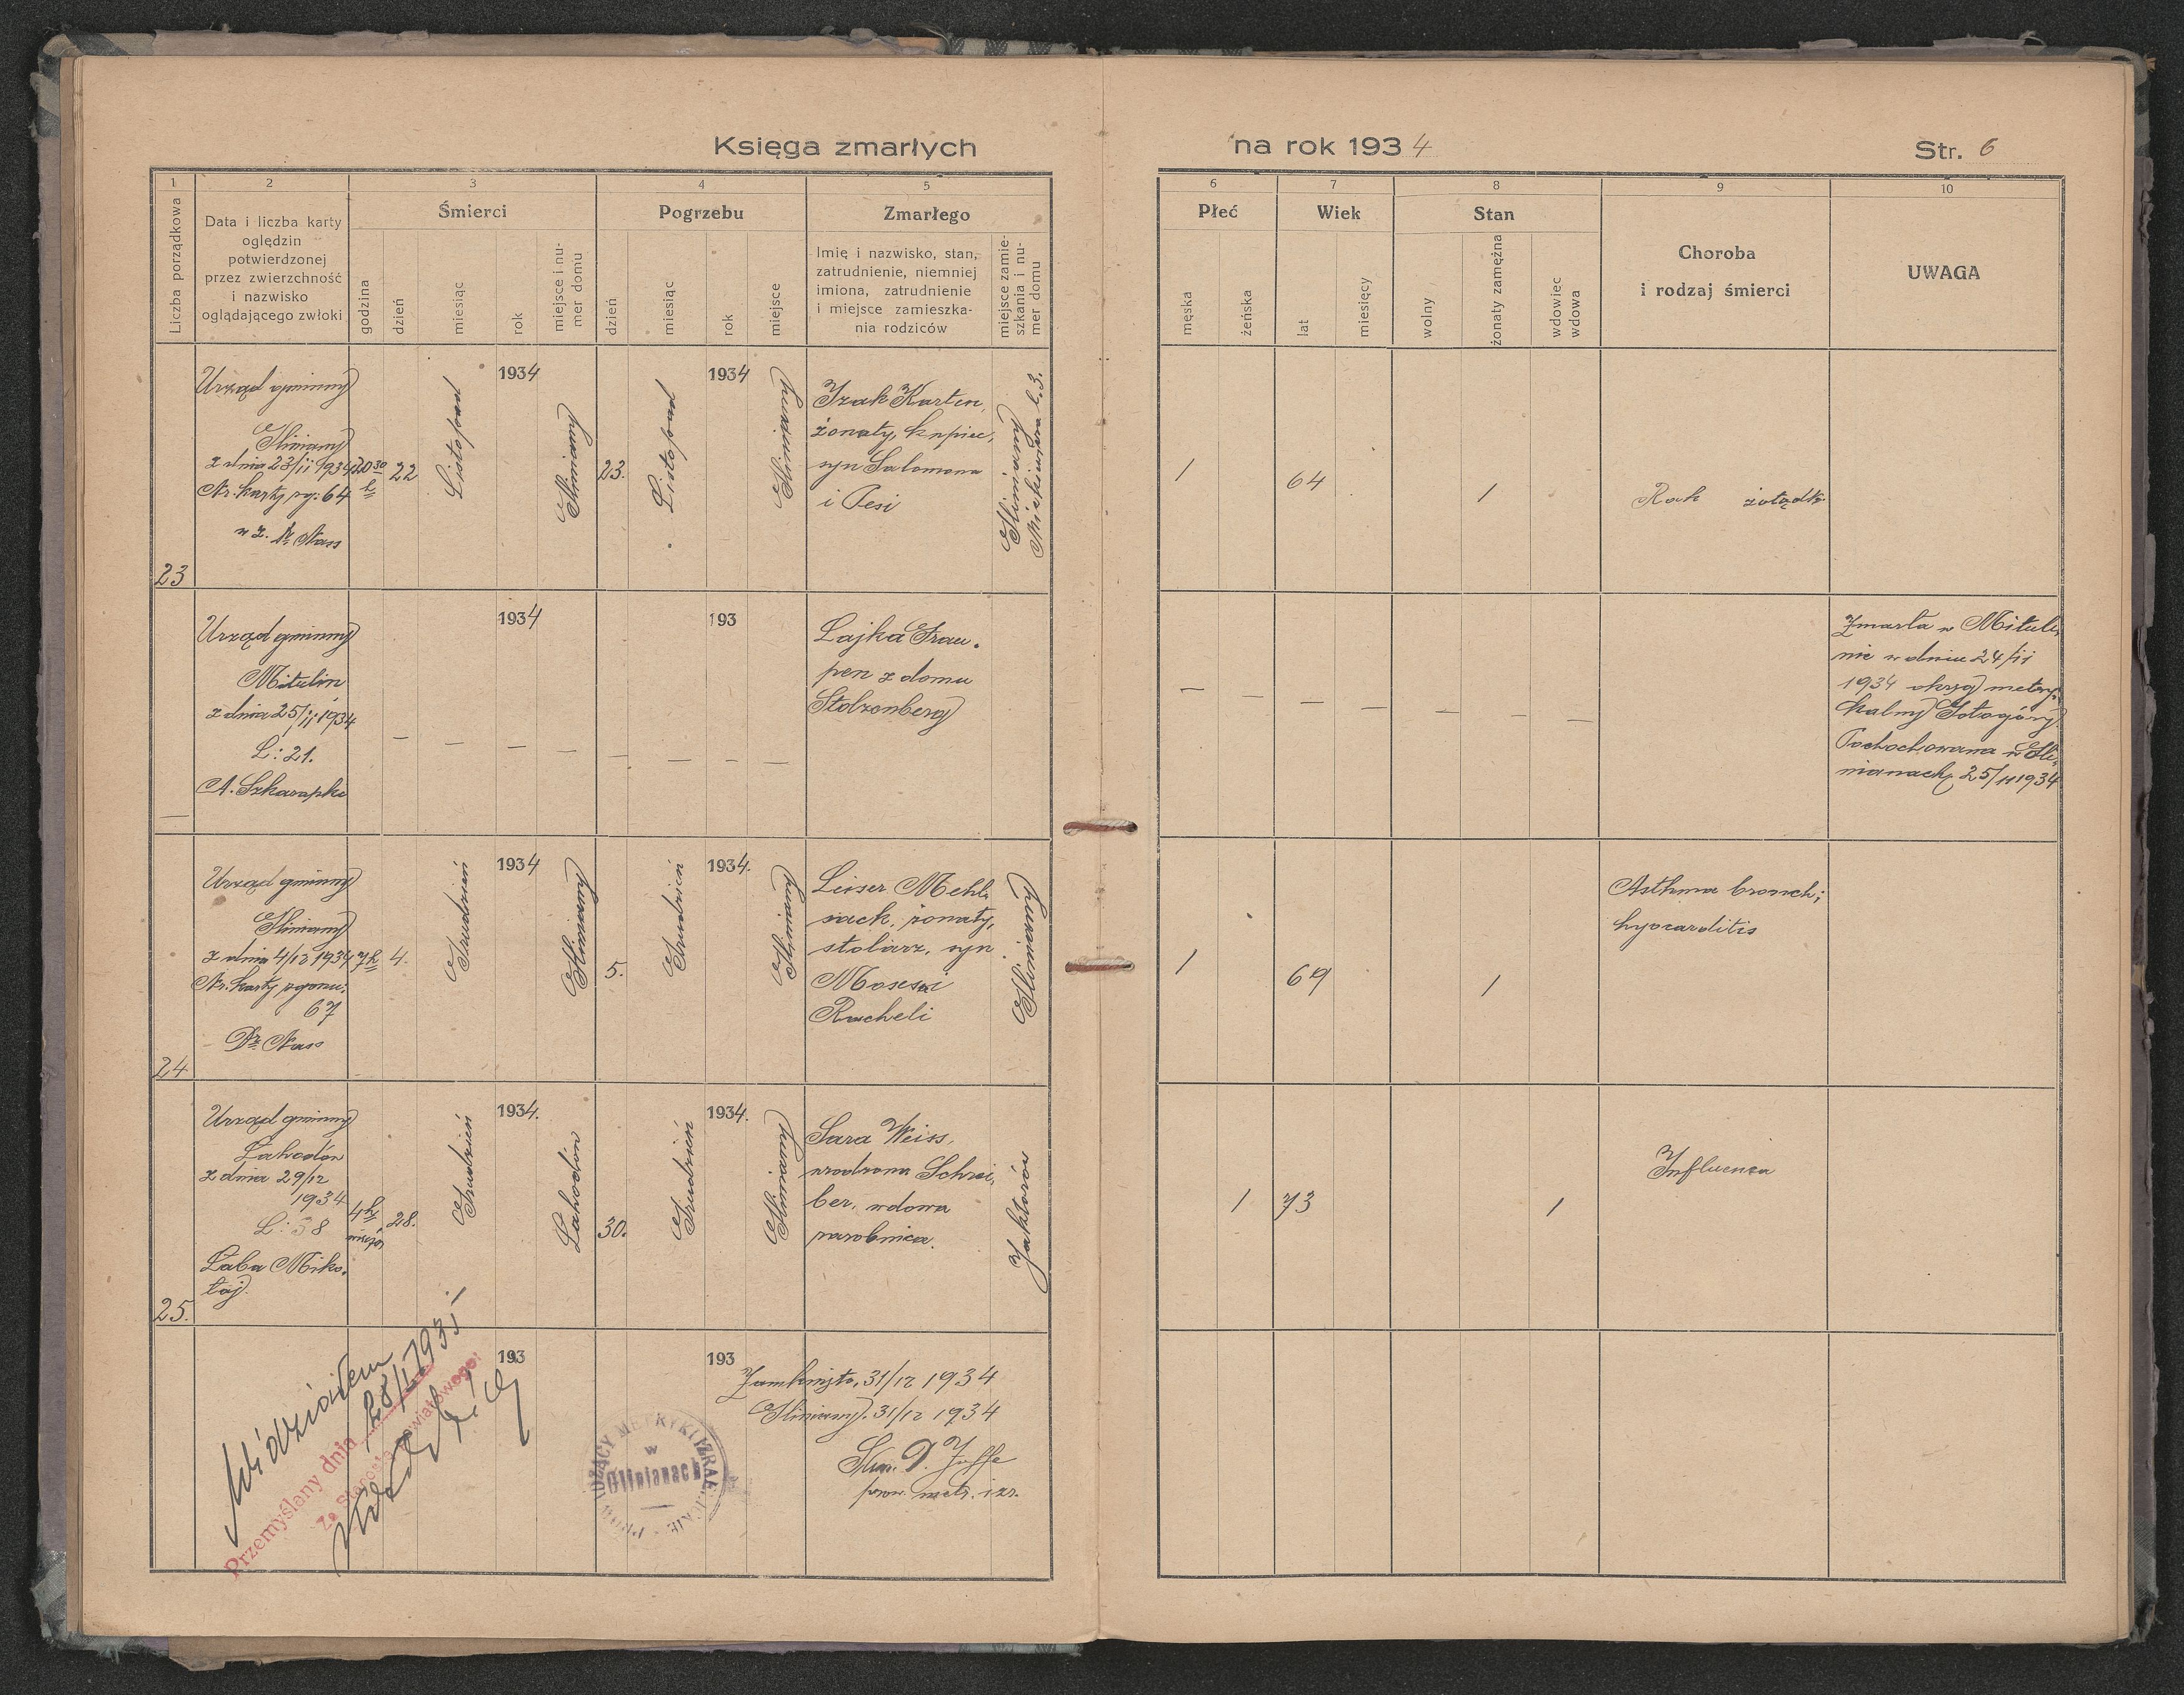 Księga zmarłych
na rok 1934
Str. 6
1
2
3
4
5
6
7
8
9
10
Liczba porządkowa
Data i liczba karty
oględzin
potwierdzonej
przez zwierzchność
i nazwisko
oglądającego zwłoki
Śmierci
godzina
dzień
miesiąc
rok
miejsce i nu-
mer domu
Pogrzebu
dzień
miesiąc
rok
miejsce
Zmarłego
Imię i nazwisko, stan,
zatrudnienie, niemniej
imiona, zatrudnienie
i miejsce zamieszka-
nia rodziców
miejsce zamie-
szkania i nu-
mer domu
Płeć
męska
żeńska
Wiek
lat
miesięcy
Stan
wolny
żonaty zamężna
wdowiec
wdowa
Choroba
i rodzaj śmierci
UWAGA
23
Urząd gminny
Gliniany
z dnia 23/11 1934
Nr. karty zg: 64
w z. Dr Nass
20 30
h
22
Listopad
1934
Gliniany
23.
Listopad
1934
Gliniany
Izak Karten,
żonaty, kupiec,
syn Salomona
i Pesi
Gliniany
l. 3.
1
64
1
Rak żołądka
—
Urząd gminny
Mitulin
z dnia 25/11 1934
L: 21.
A. Szkarapka
— — 1934 — —
— — 193 — —
Lajka Trau-
pen z domu
Stolzenberg
— — — — — — —
Zmarła w Mituli-
nie w dniu 24/11
1934 okrąg metry-
kalny Gołogóry
Pochochowana w Gli-
nianach 25/11 1934
24
Urząd gminny
Gliniany
z dnia 4/12 1934
Nr. karty zgonu:
67
Dr. Nass
7 h
4.
Grudzień
1934
Gliniany
5.
Grudzień
1934.
Gliniany
Leiser Mehl-
sack, żonaty,
stolarz, syn
Mosesa i
Racheli
Gliniany
1
69
1
Asthma bronch;
hyocarditis
25.
Urząd gminny
Łahodów
z dnia 29/12
1934
L: 58
Łaba Miko-
łaj.
4 h
28.
Grudzień
1934.
Łahodów
30.
Grudzień
1934.
Gliniany
Sara Weiss,
urodzona Schrei-
ber, wdowa
zarobnica.
Jaktorów
1
73
1
Influenza
193
193
Zamknięto, 31/12 1934
Gliniany. 31/12 1934
D. Jaffe
prow. metr. izr.
Widziałem
Przemyślany dnia 28/I 1935
Za Starostę Powiatowego:
PROWADZĄCY METRYKI IZRAELICKIE
w
Glinianach